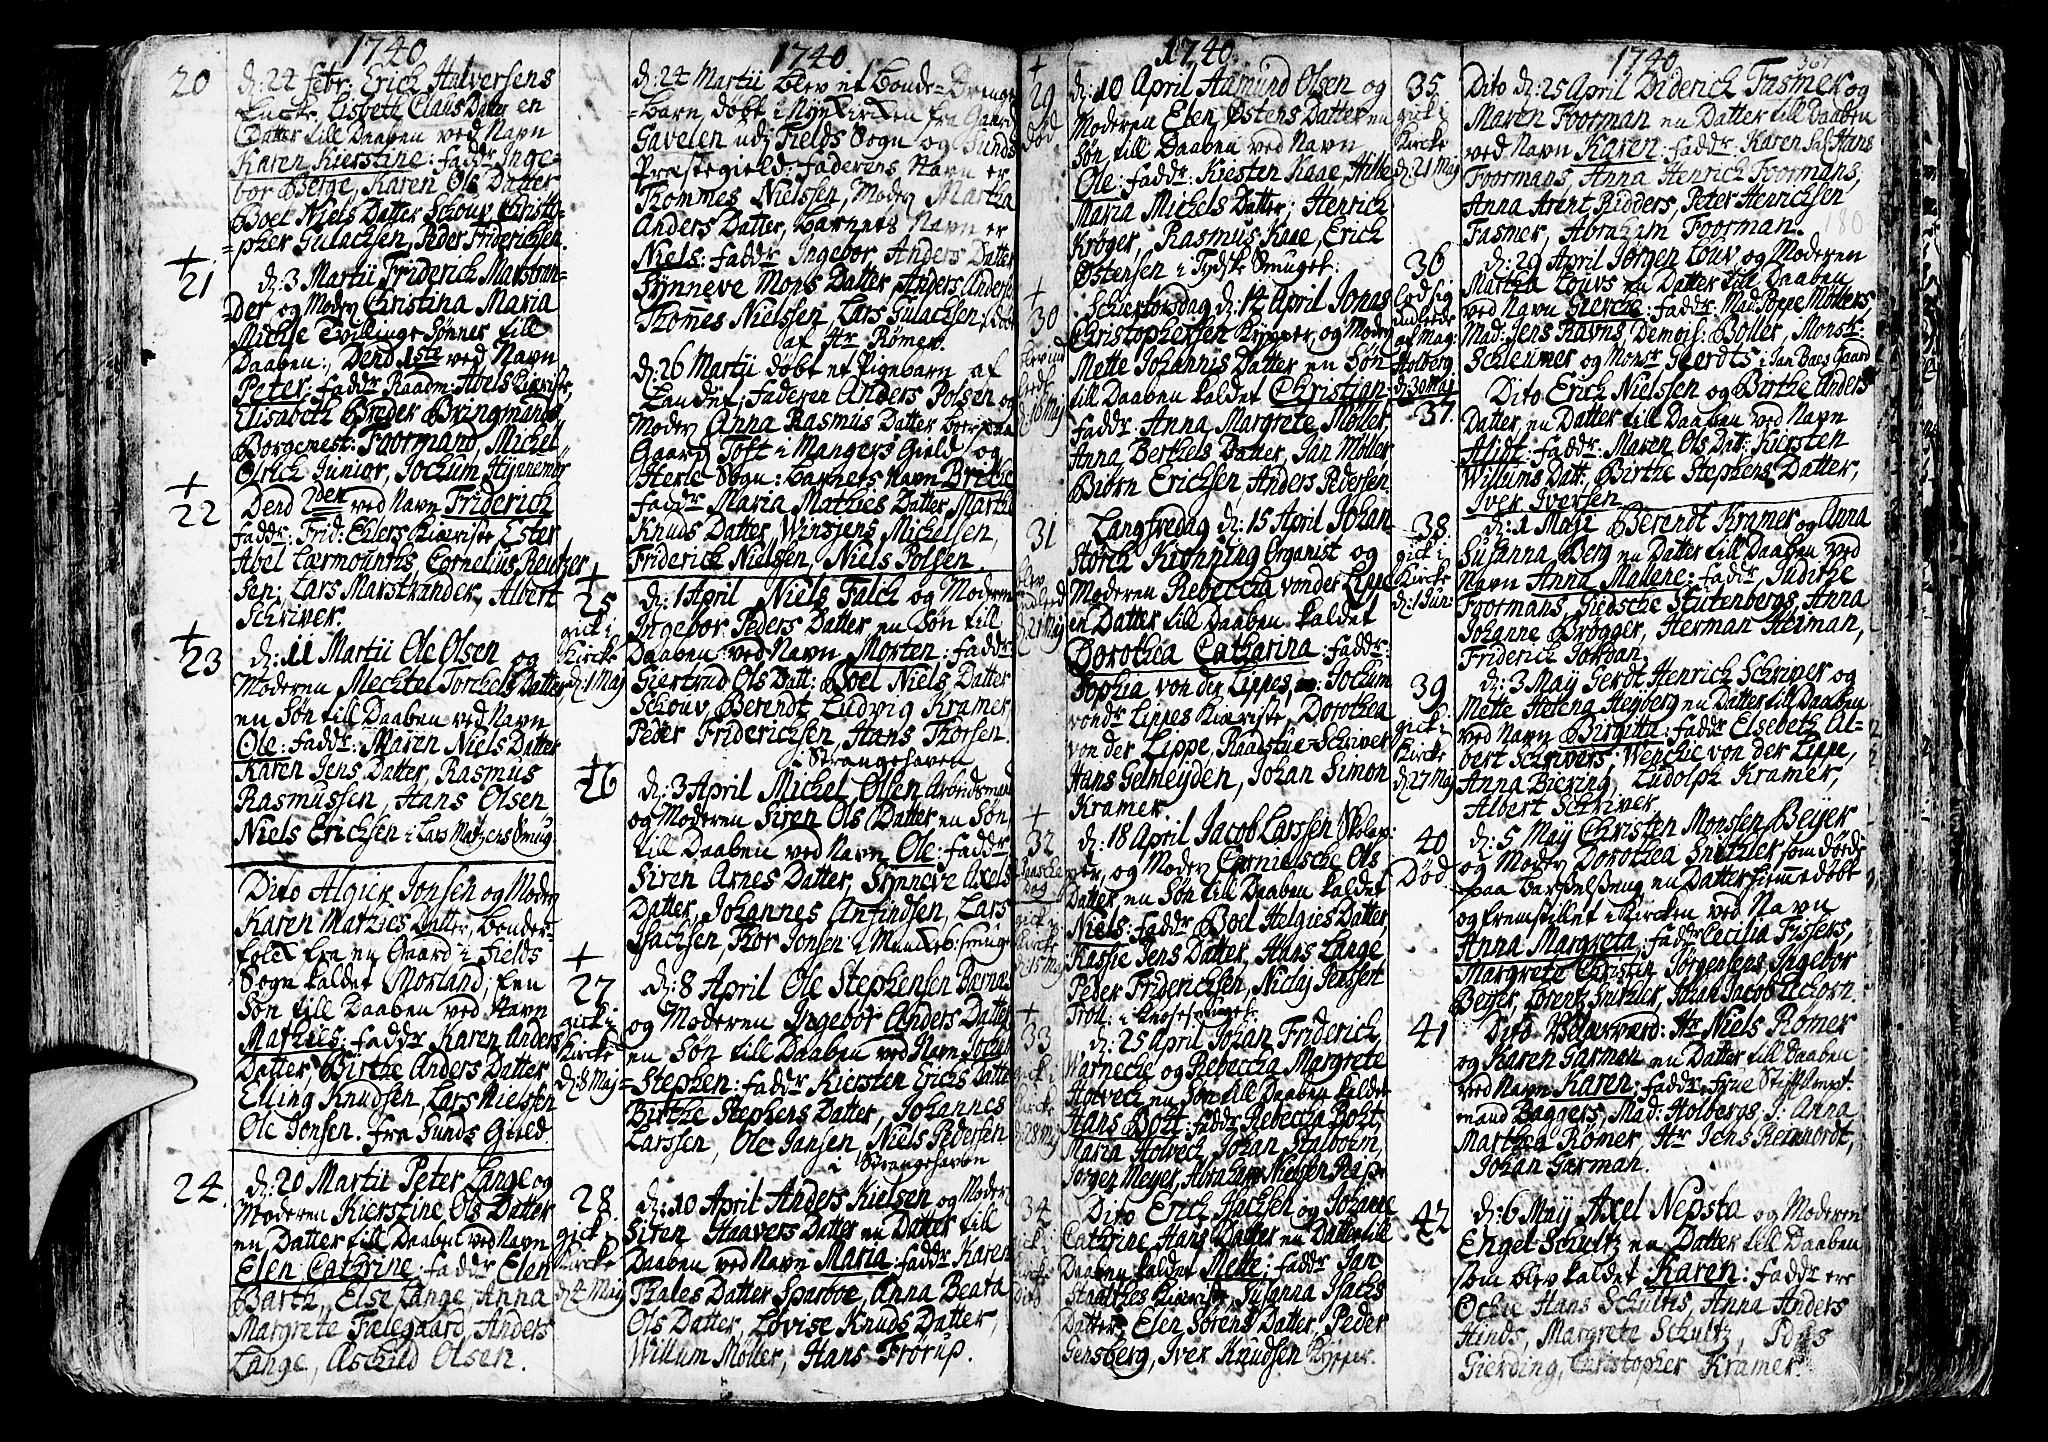 1740
20
d: 24 Febr: Erich Halversens
Enche Lisbeth Claus Datter en
Datter till Daaben ved Navn
Karen Kierstine: Faddr Inge=
bor Berge, Karen Ols Datter,
Boel Niels Datter Schouv, Christo=
=pher Gulachsen, Peder Friderichsen.
+
21
d: 3 Martii Friderich Marstran=
=der og Modrn Christina Maria
Michse Tvillinge Sønner till
Daaben: Dend 1ste ved Navn
Peter, Faddr Raadm: Abels Kiæriste,
Elisabeth Breger Bringmands,
Borgemest: Foormand, Michel
Olrich Junior, Jochum Hynnemør
+
22
Dend 2den ved Navn Friderich
Faddr: Frid: Ehlers Kiæriste Ester
Abel Lærmounths, Cornelius Reutzer
Sen: Lars Marstrander, Albert
Schriver.
+
23
d: 11 Martii Ole Olsen og
Moderen Mechtel Torchels Datter
en Søn till Daaben ved Navn
Ole: Faddr: Maren Niels Datter
Karen Jens Datter, Rasmus
Rasmussen, Hans Olsen
Niels Erichsen i Lars Matzens Smug.
Dito Algier Jonsen og Modrn
Karen Mathies Datter, bonder=
folck fra en Gaard i Fields
Sogn kaldet Morland; een
Søn till Daaben ved Navn
Mathies: Faddr Karen Anders
Datter, Birthe Anders Datter
Elling Knudsen, Lars Nielsen
Ole Jonsen. fra Sunds Gield.
24.
d: 20 Martii Peter Lange og
Moderen Kierstine Ols Datter
en Datter till Daaben ved Navn
Elen Cathrine: Faddr Elen
Barth, Else Lange, Anna
Margrete Fralegaard, Anders
Lange, Aschild Olsen.
1740
d: 24 Martii blev et bonde=Drenge
=barn, døbt i Nykirken fra Gaard
Gavelen udi Fields Sogn og Sunds
Præstegield: Faderens Navn er
Thommes Nielssen, Modrn Martha
Anders Datter, barnets Navn er
Niels: Faddr Ingebor Anders Datter
Synneve Mons Datter, Anders Anders
Thomes Nielssen, Lars Gulachsen; døbt
af Hr Rømer.
d: 26 Martii døbt et Pigebarn af
Landet: Faderen Anders Polsen og
Modrn Anna Rasmus Datter boer paa
Gaard Toft i Mangers Gield og
Herle Sogn: barnets Navn Brithe
Faddr Maria Mathies Datter, Martha
Knuds Datter Winsjens, Michelsen,
Friderich Nielssen, Niels Polsen.
+
25
gick i
Kircke
d: 1 May
d: 1 April Niels Falch og Moderen
Ingebor Peders Datter en Søn till
Daaben ved Navn Morten: Faddr:
Giertrud Ols Datt: Boel Niels Datter
Schouv, Berendt Ludvig Kramer
Peder Friderichsen, Hans Thorsen.
i Strangehaven
+
26
d: 3 April Michel Olsen Arbeidsmand
og Moderen Siren Ols Datter en Søn
till Daaben ved Navn Ole: Faddr
Siren Arnes Datter, Synneve Axels
Datter, Johannes Anfindsen, Lars
Isachsen, Thor Jonsen i Muncheb: Smuge
+
27
gick i
Kircke
d: 8 May
d: 8 April Ole Stephensen Biernæs
og Moderen Ingebor Anders Datter
en Søn till Daaben ved Navn Johan
=Stephen: Faddr Kiersten Erichs Datter
Birthe Stephens Datter, Johannes
Larssen, Ole Jansen, Niels Pedersen
i Strangehaven
28
gick i
Kircke
d: 4 May
d: 10 April Anders Kielsen og Modrn
Siren Haavers Datter en Datter till
Daaben ved Navn Maria: Faddr Karen
Thales Datter Sparboe, Anna Beata
Ols Datter, Lovise Knuds Datter,
Willum Møller, Hans Frørup.
1740.
+
29
død
d: 10 April Aamund Olsen og
Moderen Elen Østens Datter en
Søn till Daaben ved Navn
Ole: Faddr: Kiesten Kaae, Hille
Maria Michels Datter; Henrich
Krøger, Rasmus Kaae, Erich
Østensen i Tydsk Smuget:
+
30
Schiertorsdag d: 14 April Jonas
Christophersen Kypper, og Modrn
Mette Johannis Datter en Søn
till Daaben kaldet Christian:
Faddr: Anna Margrete Møller,
Anna Berthels Datter, Jan Møller
Biørn Erichsen, Anders Pedersen.
31
Langfredag d: 15 April Johan
Storch Krønning Organist og
Moderen Rebeccha vonder Lippe
en Datter till Daaben kaldet
Dorothea Catharina: Faddr:
Sophia von der Lippes, Jochum
vondr Lippes Kiæriste, Dorothea
von der Lippe, Raadstue=Schriver
Hans Gelmeyden, Johan Simon
Kramer.
+
32
d: 18 April Jacob Larssen Skolep:
er, og Modrn Cornielsche Ols
Datter, en Søn till Daaben kaldet
Niels: Faddr Boel Helgies Datter,
Kassie Jens Datter, Hans Lange,
Peder Friderichsen, Niclaj Jenssen
Froll. i Knøsesmuget.
+
33
d: 25 April Johan Friderich
Warnecke og Rebeccha Margrete
Holveck en Søn till Daaben kaldet
Hans Boht: Faddr Rebeccha Boht,
Maria Holveck, Johan Stalbohm,
Jørgen Meyer, Abraham Niessen Rasp.
34
Dito Erich Isachsen og Johanne
Cathrine Hans Datter en Datter till
Daaben kaldet Mette: Faddr Jan
Staalthes Kiæriste, Susanna Isachs
Datter, Elen Sørens Datter, Peder
Gensberg, Iver Knudsen Kypper.
1740
367
180
35.
gick i
Kircke
d: 21 May
Dito d: 25 April Diderich Fasmer og
Maren Foorman en Datter till Daaben
ved Navn Karen: Faddr: Karen Sal: Hans
Foormans, Anna Henrich Foormans,
Anna Arent Ridders, Peter Henrichsen
Fasmer, Abraham Foorman.
36
lod sig
indlede
af Mag:
Holberg
d: 30 May
d: 29 April Jørgen Louv og Moderen
Martha Louvs en Datter till Daaben
ved Navn Gierche: Faddr: Mad: Jeppe Møllers,
Mad: Jens Ravns, Demois: Boller, Monsr:
Schleumer og Monsr Geerdts i Jan Baes Gaard
37.
Dito Erich Nielssen og Birthe Anders
Datter, en Datter till Daaben ved Navn
Alidt: Faddr: Maren Ols Datt: Kiersten
Willums Datt: Birthe Stephens Datter,
Iver Iversen
38
gick i
Kircke
d: 1 Jun:
d: 1 Maji Berendt Kramer og Anna
Susanna Berg en Datter till Daaben ved
Navn Anna Malene: Faddr, Judithe
Foormans, Giedsche Stutenbergs, Anna
Johanne Brøgger, Herman Heiman,
Friderich Jordan.
39
gick i
Kircke
d: 27 May
d: 3 May Gerdt Henrich Schriver og
Mette Helena Heyberg en Datter till Daaben
ved Navn Birgitta: Faddr Elsebeth Al=
bert Schrivers, Wenche von der Lippe,
Anna Biering, Ludolph Kramer,
Albert Schriver
40
Død
d: 5 Maij Christen Monssen Beyer
og Modrn Dorothea Snitzler som døde
paa barselseng en Datter hiemedøbt
og fremstillet i Kircken ved Navn
Anna Margreta: Faddr Cecilia Fissers,
Margrete Christin Jørgensens, Ingebor
Better, Lorentz Snitzler, Johan Jacob Uchorn.
41
Dito Velærværd: Hr Niels Rømer
og Karen Garman en Datter till Daaben
ved Navn Karen: Faddr: Frue Stiftampt:
mand Baggers, Mad: Holbergs, J: Anna
Marthea Rømer, Hr Jens Reinhordt,
Johan Garman.
42
d: 6 May Axel Nepsta og Moderen
Engel Schultz en Datter till Daaben
som blev kaldet Karen: Faddr ere
Ocku Hans Schultis, Anna Anders
Hinds, Margrete Schultz,
Gierding, Christopher Kramer.